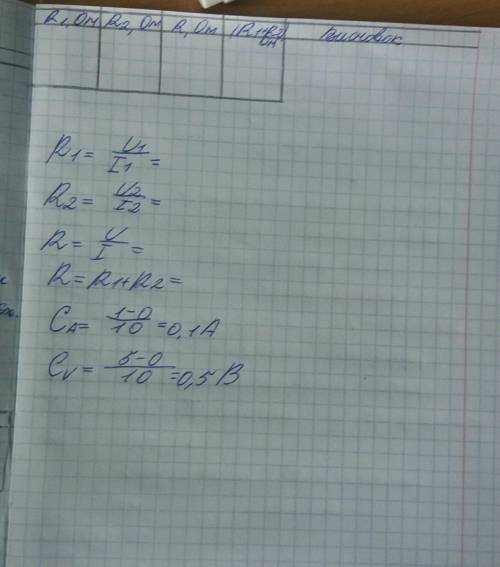 R1, Ом R2, Ом R, Ом (R1+R2), Ом Висновок
R1 = U1/I1 =
R2 = U2/I2 =
R = U/I =
R = R1+R2 =
CA = 1-0/10 = 0,1 A
CV = 5-0/10 = 0,5 В